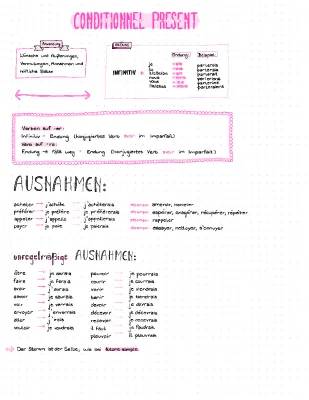 CONDITIONNEL PRESENT
Wünsche und Äußerungen,
Vermutungen, Annahmen und
höfliche Bitten
BILDUNG
Endung: Beispiel:
INFINITIV +
je -ais parlerais
tu -ais parlerais
il/elle/on -ait parlerait
nous -ions parlerions
vous -iez parleriez
ils/elles -aient parleraient
Verben auf -er:
Infinitiv + Endung (konjugiertes Verb avoir im Imparfait)
Verb auf -re:
Endung -e fällt weg + Endung (konjugiertes Verb avoir im Imparfait)
AUSNAHMEN:
acheter → j'achète → j'achèterais amener
préférer → je préfère → je préférerais espérer, récupérer, répéter
appeler → j'appelle → j'appellerais rappeler
payer → je paie → je paierais essayer, nettoyer, s'ennuyer
unregelmäßige AUSNAHMEN:
être → je serais pouvoir → je pourrais
faire → je ferais courir → je courrais
avoir → j'aurais venir → je viendrais
savoir → je saurais tenir → je tiendrais
voir → je verrais devoir → je devrais
envoyer → j'enverrais décevoir → je décevrais
aller → j'irais recevoir → je recevrais
vouloir → je voudrais il faut → il faudrait
pleuvoir → il pleuvrait
→ Der Stamm ist der Selbe, wie bei futur simple.